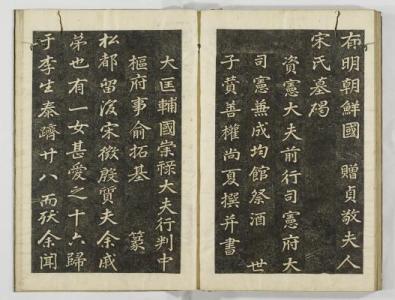 有明朝鮮國 贈貞敬夫人
宋氏墓碣
資憲大夫前行司憲府大
司憲兼成均館祭酒 世
子贊善權尚夏撰并書
大匡輔國崇祿大夫行判中
樞府事俞拓基 篆
松都留後宋徵殷質夫余戚
弟也有一女甚愛之十六歸
于李生泰躋廿八而歿余聞